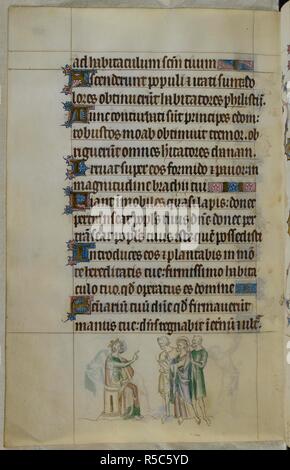 ad habitaculum scm tuum
Ascenderunt populi & irati sunt do
lores obtinuerūt habitatores philistiī.
Tunc conturbati sūt principes edom:
robustos moab obtinuit tremor. ob
riguerūt omnes hitatores chanaā.
Irruat super eos formido & pavor: in
magnitudine brachii tui
Fiant immobiles quasi lapis: donec
pertranseat populus tuus dñe: donec per
transeat populus tuus iste quē possedisti
Introduces eos & plantabis in mō
te hereditatis tue: firmissimo habita
culo tuo qđ operatus es domine
Sc̄uariū tuū dñe qđ firmaverūt
manus tue: dñs regnabit ī et̄nū & ult̄.
alamy
Image ID: R5C5YD
www.alamy.com